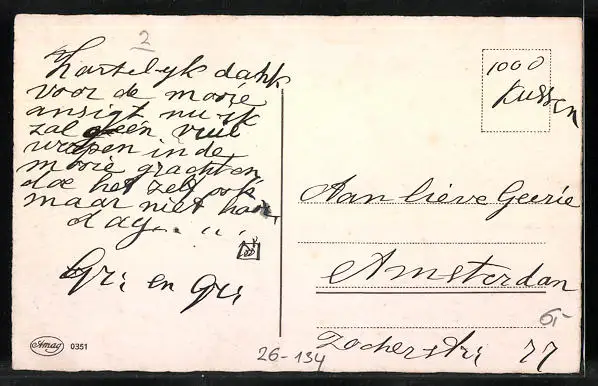 2
Hartelijk dank
voor de mooie
ansigt nu ik
zal geén vuil
werpen in de
mooie grachten
doe het zelf ook
maar niet hoor
dag.....
Gri en Gri
Amag 0351
1000
kussen
Aan lieve Geerie
Amsterdan
6,-
Zocherstr; 77
26-134